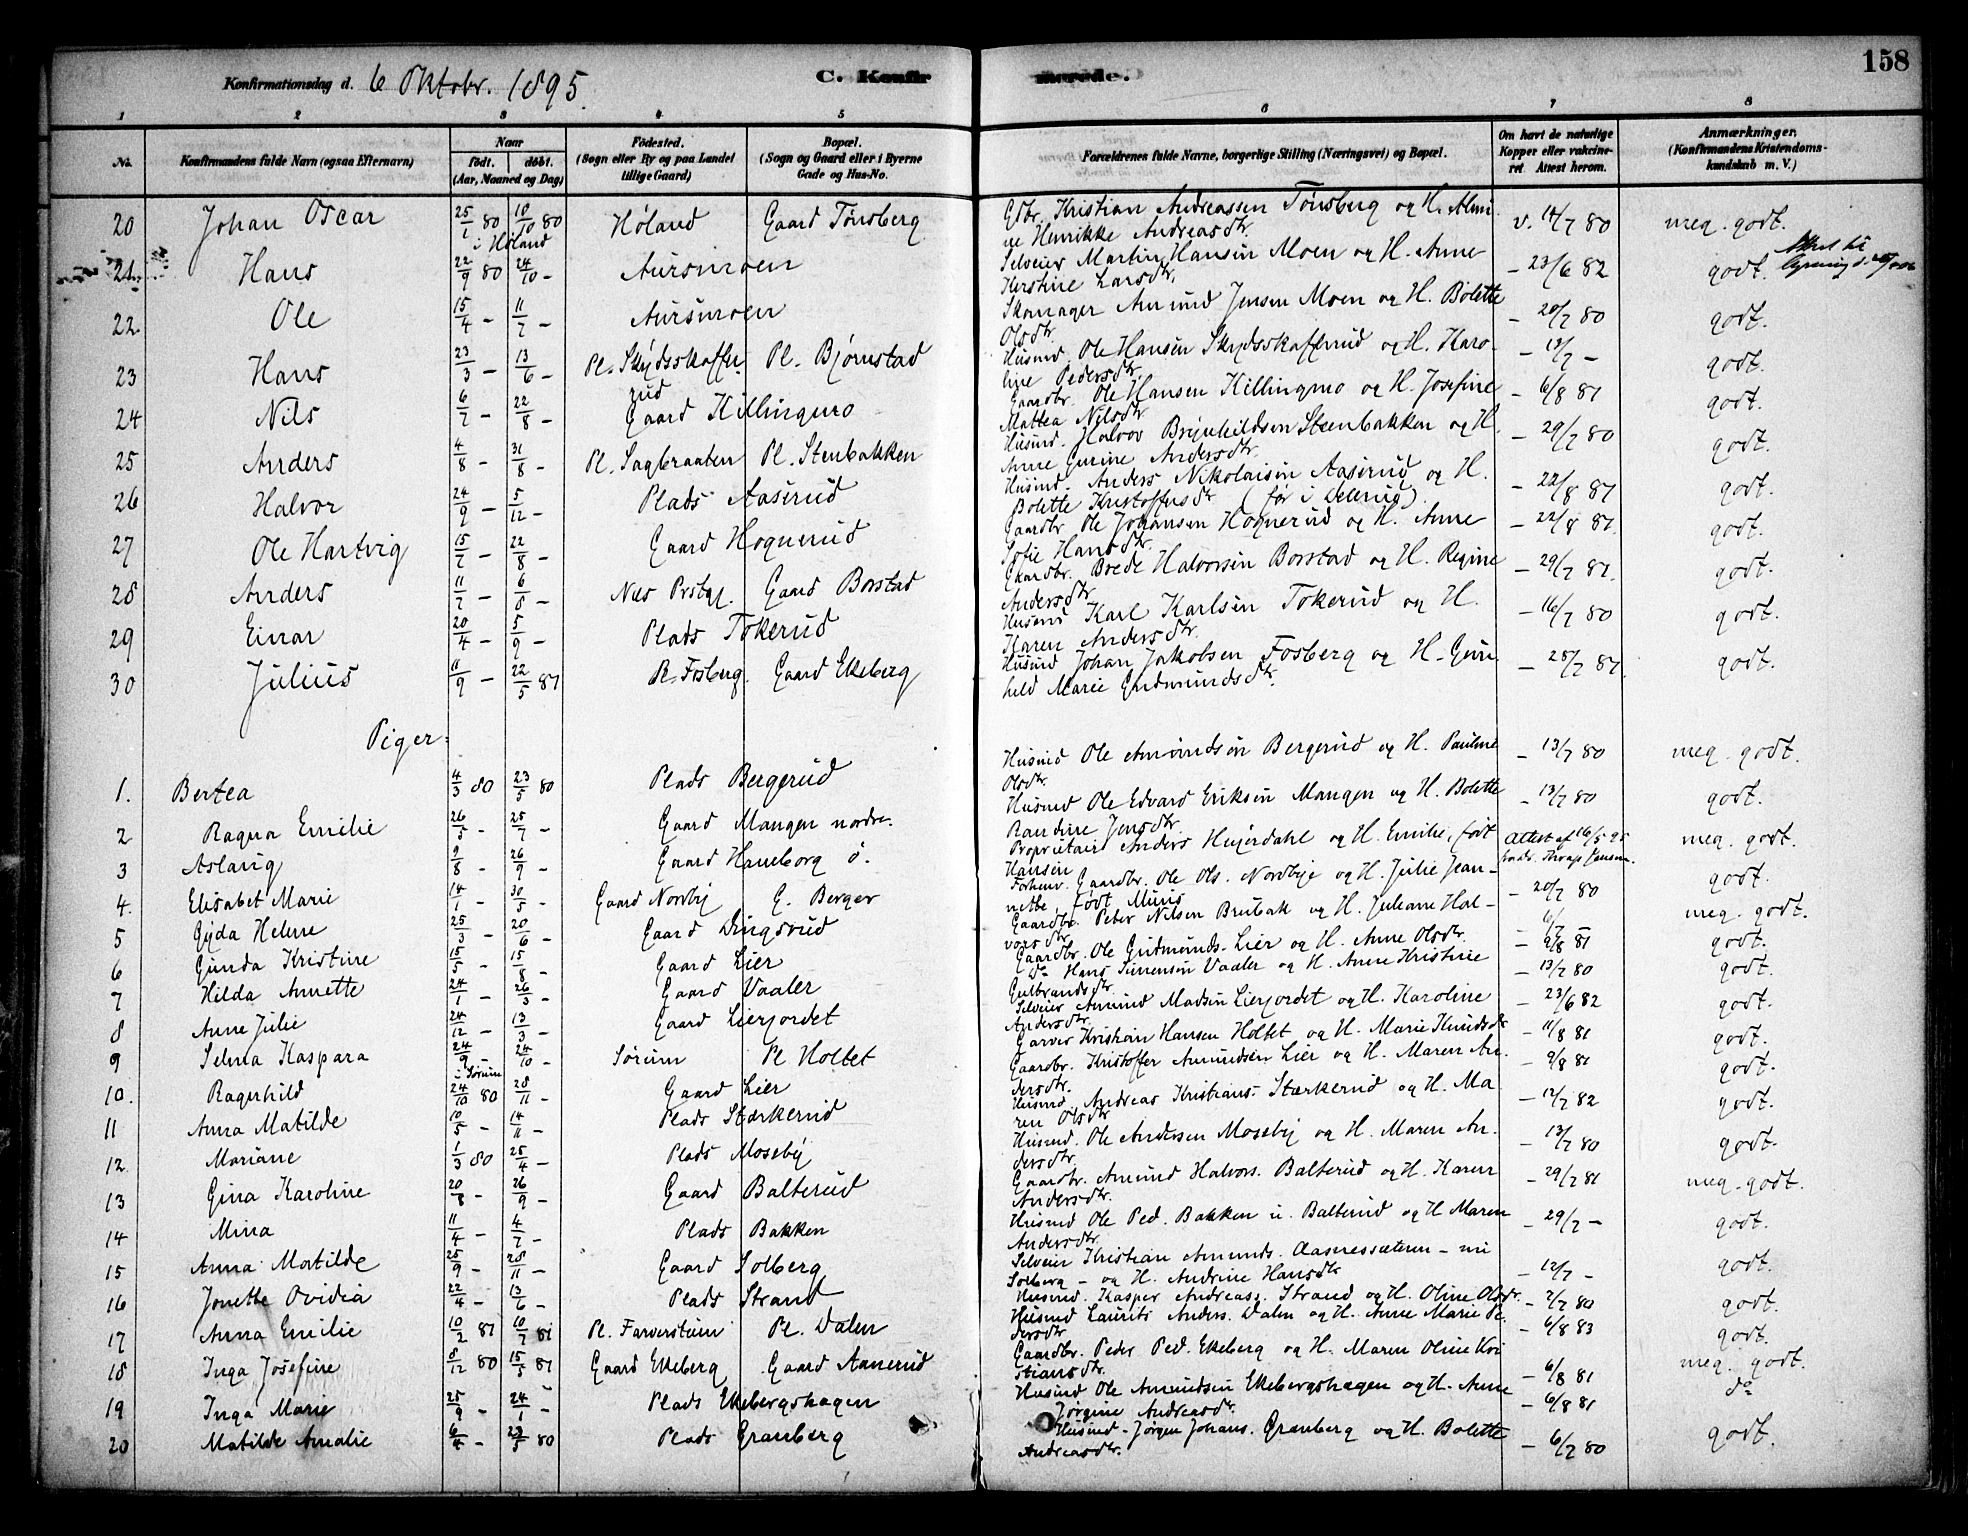 158
Konfirmationsdag d. 6 Oktobr. 1895.
C. Konfirmerede.
1 2 3 4 5 6 7 8
No. Konfirmandens fulde Navn (ogsaa Efternavn) Naar født. døbt. (Aar, Maaned og Dag) Fødested. (Sogn eller By og paa Landet tillige Gaard) Bopæl. (Sogn og Gaard eller i Byerne Gade og Hus-No. Forældrenes fulde Navne, borgerlige Stilling (Næringsvei) og Bopæl. Om havt de naturlige Kopper eller vaccineret Attest herom. Anmærkninger. (Konfirmandens Kristendomskundskab m. V.)
20 Johan Oscar 25/1 80 10/10 80 i Høland Høland Gaard Tønsberg Gdbr. Kristian Andreassen Tønsberg og H. Almine Henrikke Andreasdtr. v. 14/7 80 meg. godt.
21. Hans 22/9 80 24/10 – Aursmoen Selveier Martin Hansen Moen og H. Anne Kerstine Larsdtr. – 23/6 82 godt.
22. Ole 15/4 – 11/7 – Aursmoen Skomager Amund Jensen Moen og H. Bolette Olsdtr. – 20/7 80 godt.
23 Hans 23/3 – 13/6 – Pl. Skydsskafferrud Pl. Bjørnstad Husmd. Ole Hansen Skydsskafferrud og H. Karoline Pedersdtr. – 13/7 – godt.
24 Nils 6/7 – 22/8 – Gaard Killingmo Gaardbr. Ole Hansen Killingmo og H. Josefine Mattea Nilsdtr. – 6/8 81 godt.
25 Anders 4/8 – 31/8 – Pl. Sagbraaten Pl. Stenbakken Husmd. Halvor Brynhildsen Steenbakken og H. Anne Gurine Andersdtr. – 29/7 80 godt.
26 Halvor 24/9 – 5/12 – Plads Aaserud Husmd. Anders Nikolaisen Aaserud og H. Bolette Kristoffersdtr – 22/8 81 godt.
27 Ole Hartvig 15/7 – 22/8 – Gaard Hognerud Gaardbr. Ole Johansen Hognerud og H. Anne Sofie Hansdtr. – 22/8 81 godt.
28 Anders 11/7 – 6/8 – Nes Prstgj. Gaard Borstad Gaardbr. Brede Halvorsen Borstad og H. Regine Andersdtr. – 29/7 81. godt.
29 Einar 20/4 – 5/9 – Plads Tokerud Husmd Karl Karlsen Tokerud og H. Karen Andersdtr. – 16/7 80 godt.
30 Julius 11/9 – 22/5 81 Pl. Fosberg. Gaard Ekeberg Husmd Johan Jakobsen Fosberg og H. Gunhild Marie Gudmundsdtr. – 28/7 81. godt.
Piger:
1. Bertea 4/3 80 23/5 80 Plads Bergerud Husmd Ole Amundsen Bergerud og H. Pauline Olsdtr. – 13/7 80 meg. godt.
2 Ragna Emilie 26/5 – 25/7 – Gaard Mangen nordre. Husmd Ole Edvard Eriksen Mangen og H. Bolette Randine Jensdtr. – 13/7 80 godt.
3 Aslaug 9/8 – 26/9 – Gaard Haneborg ø. Proprietair Anders Heyerdahl og H. Emilie, født Hansen Attest af 16/5 95 meg. godt.
4. Elisabet Marie 14/1 – 30/5 – Gaard Nordby G. Berger Forhenv. Gaardbr. Ole Ols. Nordbye og H. Julie Jeannette, født – 20/7 80 godt.
5 Gyda Helene 25/3 – 20/6 – Gaard Dingsrud Gaardbr. Peter Nilsen Breibak og H. Juliane Halvorsdtr. – 6/7 – meg. godt.
6 Gunda Kristine 15/5 – 15/8 – Gaard Lier Gaardbr. Ole Gudmunds. Lier og H. Anne Olsdtr. – 9/8 81 godt.
7 Hilda Annette 24/1 – 26/3 – Gaard Vaaler do Hans Simensen Vaaler og H. Anne Kristine Gulbrandsdtr – 13/7 80 godt.
8 Anne Julie 24/12 – 13/3 – Gaard Lierjordet Selveier Amund Madsen Lierjordet og H. Karoline Andersdtr. – 23/6 82 godt.
9 Selma Kaspara 24/9 – 24/10 – i Sørum Sørum Pl Holtet Garver Kristian Hansen Holtet og H. Marie Knudsdtr – 11/8 81 godt.
10. Ragnhild 24/10 80 28/11 – Gaard Lier Gaardbr. Kristoffer Amundsen Lier og H. Maren Andersdtr. – 9/8 81 godt.
11 Anna Matilde 10/5 – 14/11 – Plads Stærkerud Husmd. Andreas Kristians. Stærkerud og H. Maren Olsdtr – 12/7 82 godt.
12. Mariane 1/3 80 25/4 – Plads Moseby Husmd. Ole Andersen Moseby og H. Maren Andersdtr. – 13/7 80 godt.
13 Gina Karoline 20/8 – 26/9 – Gaard Balterud Gaardbr. Amund Halvors. Balterud og H. Karen Andersdtr. – 29/7 81 meg. godt.
14 Mina 11/4 – 4/7 – Plads Bakken Husmd Ole Ped. Bakken u. Balterud og H Maren Andersdtr. – 29/7 – godt.
15 Anna Matilde 25/9 – 28/11 – Gaard Solberg Selveier Kristian Amunds. Aaseressæteren – nu Solberg – og H. Andrine Hansdtr – 12/7 – godt.
16 Jonette Ovidia 22/4 – 13/6 – Plads Strand Husmd. Kasper Andreass. Strand og H. Oline Olsdtr. – 2/7 80 godt.
17 Anna Emilie 10/2 81 10/7 81 Pl. Farverstuen Pl. Dalen Husmd Laurits Anders. Dalen og H. Anne Marie Pedersdtr – 6/8 83 godt.
18 Inga Josefine 8/12 80 15/5 81 Gaard Ekeberg Gaard Aanerud Gaardbr. Peder Ped. Ekeberg og H. Maren Oline Kristiansdtr. – 6/8 81 meg. godt.
19 Inga Marie 25/9 – 24/1 – Plads Ekebergshagen Husmd Ole Amundsen Ekebergshagen og H. Anne Jørgine Andreasdtr. – 6/8 81 do
20 Matilde Amalie 6/4 – 23/5 80 Plads Granberg Husmd. Jørgen Johans. Granberg og H. Bolette Andreasdtr. – 6/7 80 godt.